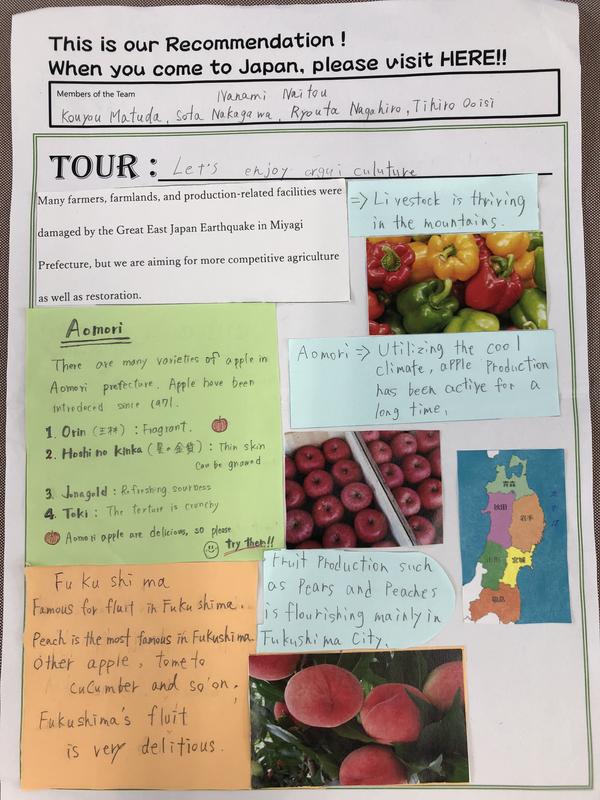 This is our Recommendation !
When you come to Japan, please visit HERE!!
Members of the Team
Nanami Naitou
Kouyou Matuda, Sota Nakagawa, Ryouta Nagahiro, Tihiro Ooisi
TOUR : Let's enjoy argui culuture
Many farmers, farmlands, and production-related facilities were
damaged by the Great East Japan Earthquake in Miyagi
Prefecture, but we are aiming for more competitive agriculture
as well as restoration.
⇒ Livestock is thriving
in the mountains.
Aomori
There are many varieties of apple in
Aomori prefecture. Apple have been
introduced since 1971.
1. Orin (王林) : Fragrant.
2. Hoshi no kinka (星の金貨) : Thin skin
can be gnawed
3. Jonagold : Refreshing sourness
4. Toki : The texture is crunchy
Aomori apple are delicious, so please
try them!!
Aomori ⇒ Utilizing the cool
climate, apple production
has been active for a
long time,
青森
秋田
岩手
山形
宮城
福島
Fukushima
Famous for fluit in Fukushima.
Peach is the most famous in Fukushima.
Other apple, tometo
cucumber and so on.
Fukushima's fluit
is very delitious.
Fruit Production such
as Pears and Peaches
is flourishing mainly in
Fukushima City.